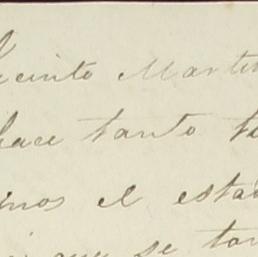 Jacinto Martin
hace tanto ti
mos el estad
que se tom